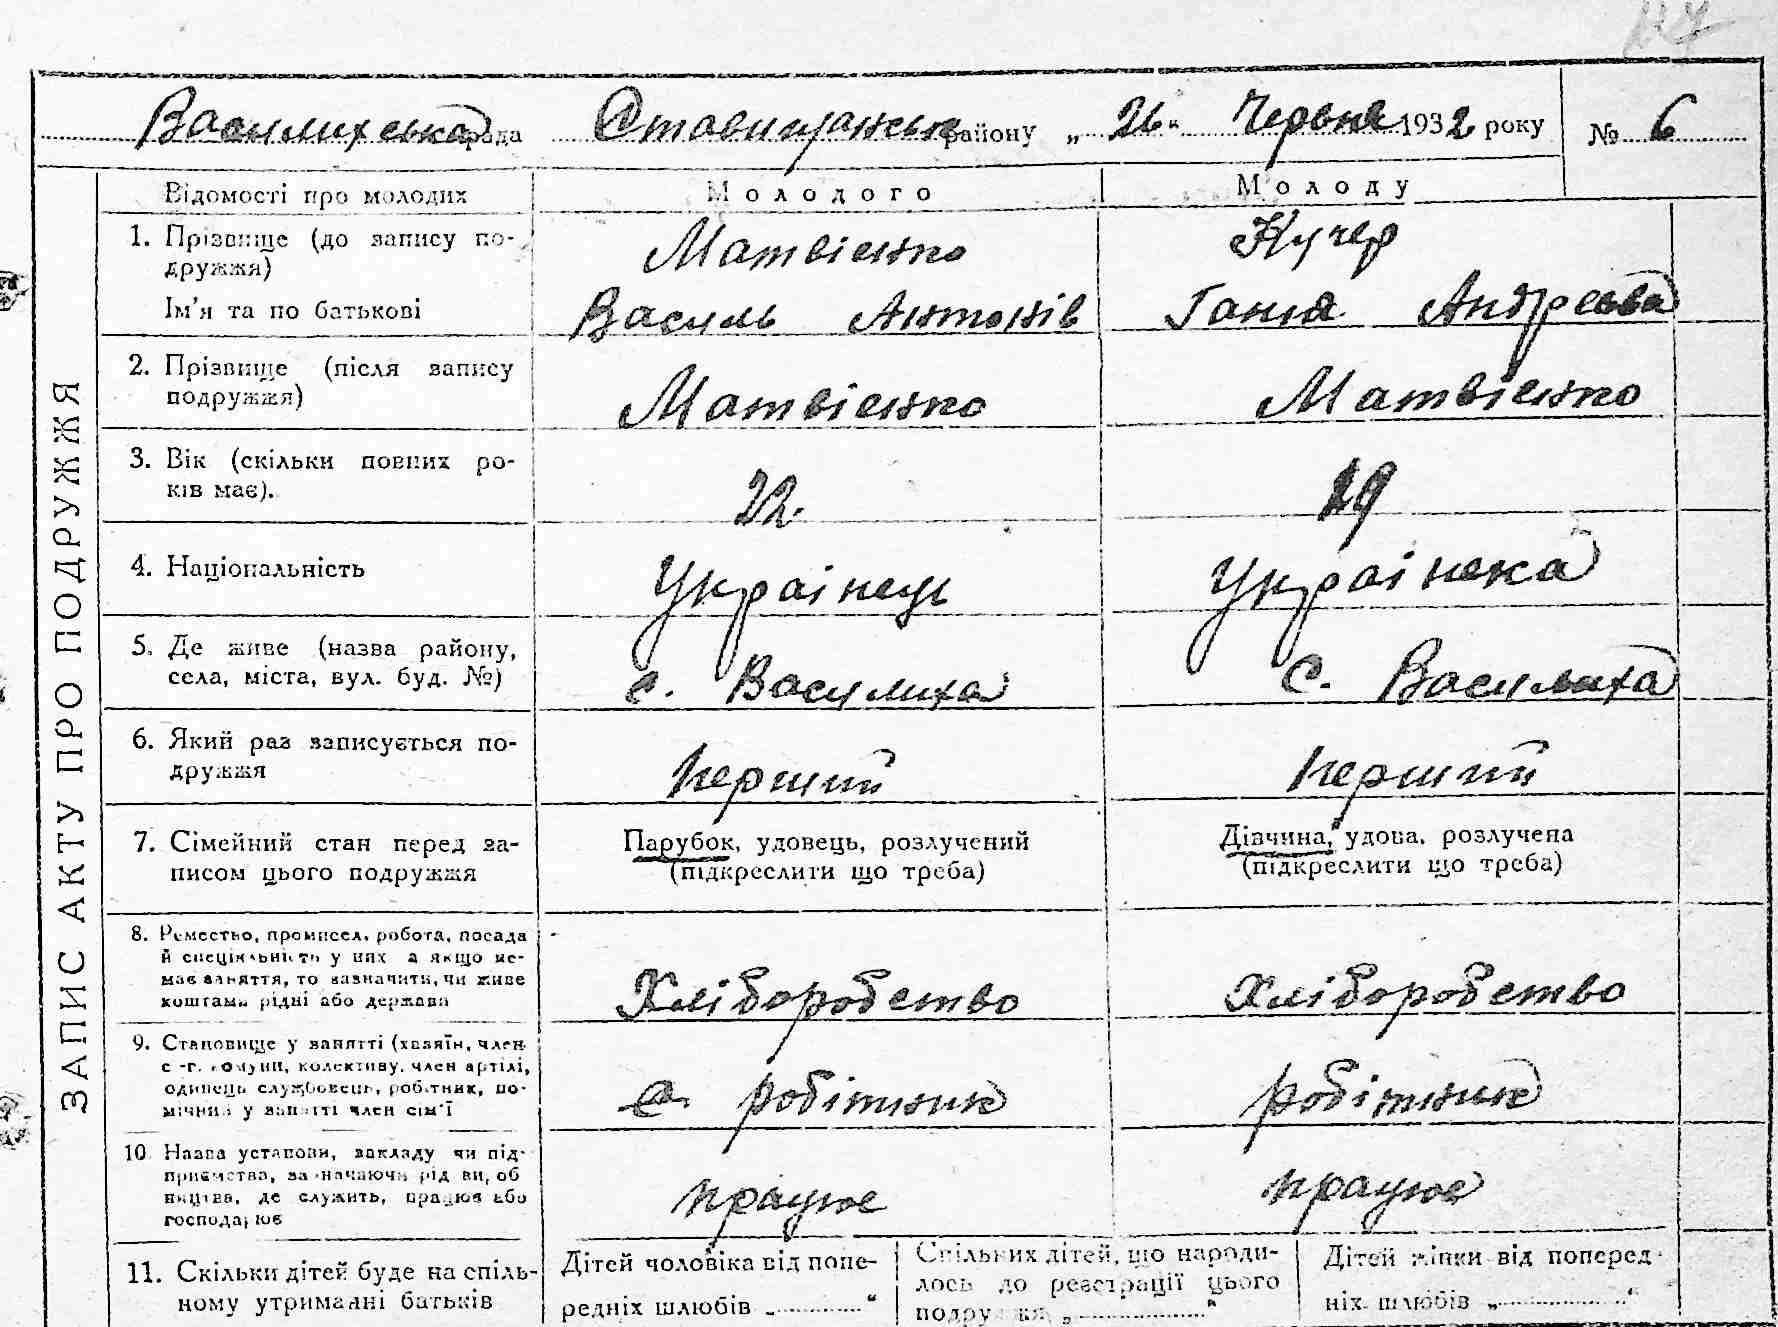 Василихська рада Ставищанськ району „ 26 “ Червня 1932 року № 6
ЗАПИС АКТУ ПРО ПОДРУЖЖЯ
Відомості про молодих Молодого Молоду
1. Прізвище (до запису по- Матвієнко Кучер
дружжя)
Ім’я та по батькові Василь Антонів Ганна Андреєва
2. Прізвище (після запису
подружжя) Матвієнко Матвієнко
3. Вік (скільки повних ро-
ків має). 22.
4. Національність Українець Українека
5. Де живе (назва району,
села, міста, вул. буд. №) с. Василиха С. Василиха
6. Який раз записується по-
дружжя перший перший
7. Сімейний стан перед за- Парубок, удовець, розлучений Дівчина, удова, розлучена
писом цього подружжя (підкреслити що треба) (підкреслити що треба)
8. Ремество, промисел, робота, посада
й спеціяльність у них а якщо не-
має заняття, то зазначити, чи живе
коштами рідні або держави Хліборобство Хліборобство
9. Становище у занятті (хазяїн, член
с.-г. комуни, колективу, член артілі,
одинець службовець, робітник, по-
мічний у занятті член сім’ї робітник робітник
10 Назва установи, закладу чи під-
приємства, зазначаючи рід вироб
ництва, де служить, працює або
господарює працює працює
11. Скільки дітей буде на спіль- Дітей чоловіка від попе- Спільних дітей, що народи- Дітей жінки від поперед-
ному утриманні батьків редніх шлюбів „ “ лось до реєстрації цього ніх шлюбів „ “
подружжя „ “